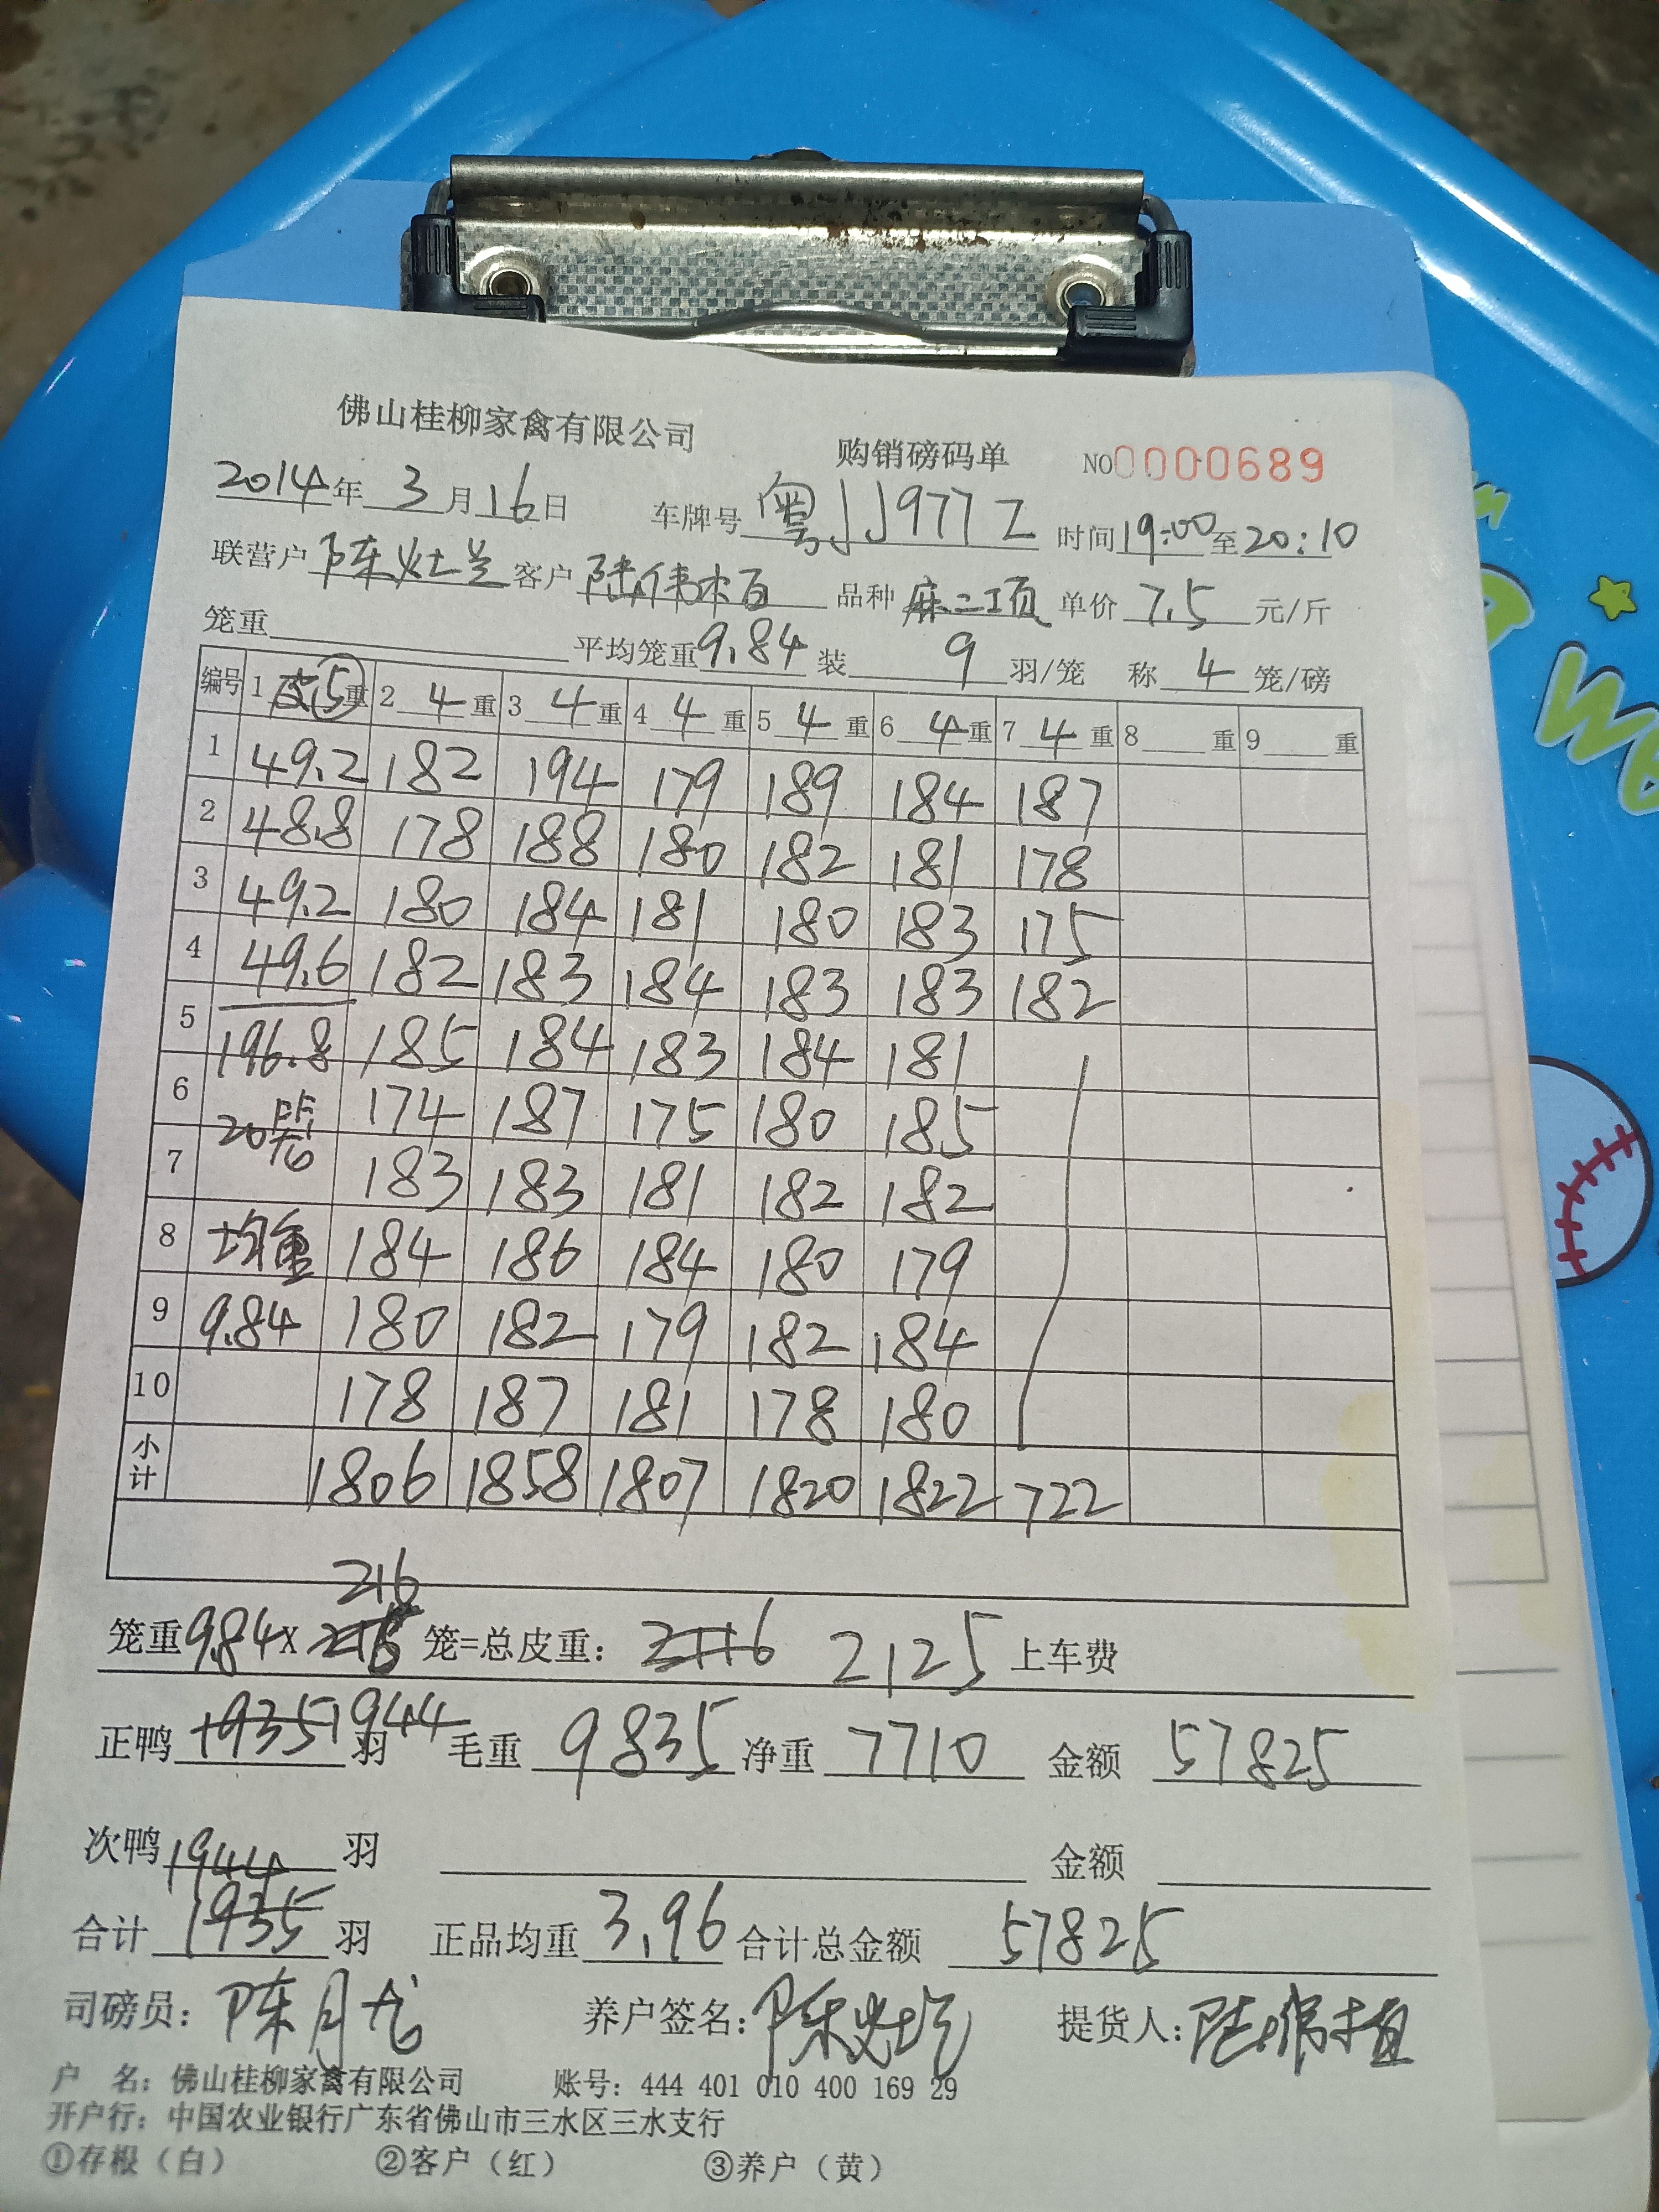 佛山桂柳家禽有限公司 购销磅码单 NO 0000689
2014年3月16日 车牌号 粤JJ977Z 时间 19:00 至 20:10
联营户 陈灶兰 客户 陆伟 品种 麻二项 单价 7.5 元/斤
笼重 平均笼重 9.84 装 9 羽/笼 称 4 笼/磅
编号 1 皮⑤重 2 4 重 3 4 重 4 4 重 5 4 重 6 4 重 7 4 重 8 重 9 重
1 49.2 182 194 179 189 184 187
2 48.8 178 188 180 182 181 178
3 49.2 180 184 181 180 183 175
4 49.6 182 183 184 183 183 182
5 196.8 185 184 183 184 181
6 20 174 187 175 180 185
7 183 183 181 182 182
8 均重 184 186 184 180 179
9 9.84 180 182 179 182 184
10 178 187 181 178 180
小计 1806 1858 1807 1820 1822 722
216
笼重 9.84 X 215 笼=总皮重: 2116 2125 上车费
正鸭 1935 1944 羽 毛重 9835 净重 7710 金额 57825
次鸭 羽 金额
1944
合计 1935 羽 正品均重 3.96 合计总金额 57825
司磅员: 陈月 养户签名: 陈灶 提货人: 陆
户 名: 佛山桂柳家禽有限公司 账号: 444 401 010 400 169 29
开户行: 中国农业银行广东省佛山市三水区三水支行
①存根（白） ②客户（红） ③养户（黄）